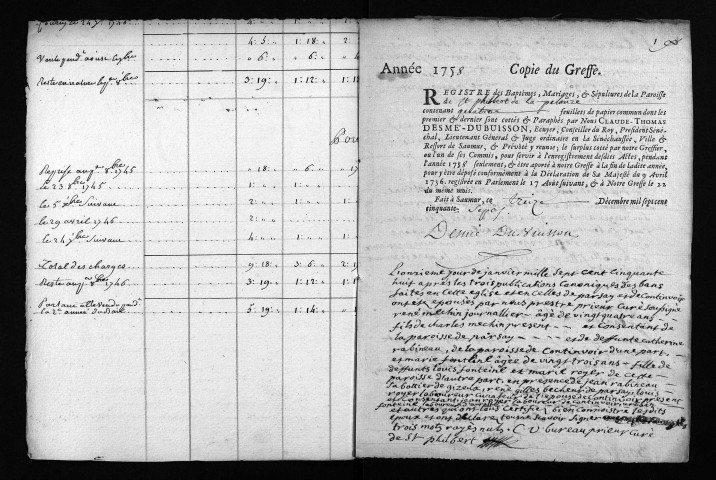 4: 5: 1: 18: 2:
6: 6: 4
3: 19: 1: 12: 1: 18
18: 6: 17
le 23 8bre 1745 4: 1: 1:
le 5 xbre Suivant 2: 1: 1:
le 29 avril 1746 2:
le 24 xbre Suivant 4: 1: 1:
Total des charges 9: 18: 3: 6: 2: 1
3: 19: 1: 12: 1:
5: 19: 1: 14:
Année 1758 Copie du Greffe.
REGISTRE des Baptêmes, Mariages, & Sépultures de la Paroisse
de St philbert de la pelouze
contenant quatre feuillets de papier commun dont les
premier & dernier sont cottés & Paraphés par Nous CLAUDE-THOMAS
DESMÉ-DUBUISSON, Ecuyer, Conseiller du Roy, President Séné-
chal, Lieutenant Général & Juge ordinaire en la Sénéchaussée, Ville &
Ressort de Saumur, & Prévôté y reunie; le surplus cotté par notre Greffier,
ou l'un de ses Commis, pour servir à l'enregistrement desdits Actes, pendant
l'année 1758 seulement, & être aporté à notre Greffe à la fin de ladite année,
pour y être déposé conformément à la Déclaration de Sa Majesté du 9 Avril
1736. registrée en Parlement le 17 Août suivant, & à Notre Greffe le 22
du même mois.
Fait à Saumur, ce treize Décembre mil sept cent
cinquante sept
Desmé Dubuisson
L'onzieme jour de janvier mille Sept Cent Cinquante
huit après les trois publications Canoniques des bans
faites en Cette eglise et en celles de parsay et de Continvoir
ont eté epousés par nous prestre prieur Curé Soussigné
rené mechin journallier âgé de vingt quatre ans
fils de charles mechin present et Consentant de
la paroisse de parsay et de deffunte Catherine
rabineau, de la paroisse de Continvoir d'une part,
et marie fonteine âgée de vingt trois ans fille de
deffunts louis fonteine et marie royer de Cette
paroisse d'autre part, en presence de jean rabineau
sabottier de gizeux, rené gilles becheur de parsay, louis
royer laboureur Curateur de l'epouse de Continvoir present
et autres qui ont tous Certifié bien Connoistre lesdits
epoux et ont declaré tous ne Scavoir Signer
trois mots rayés nuls. C V bureau prieur curé
de St philbert